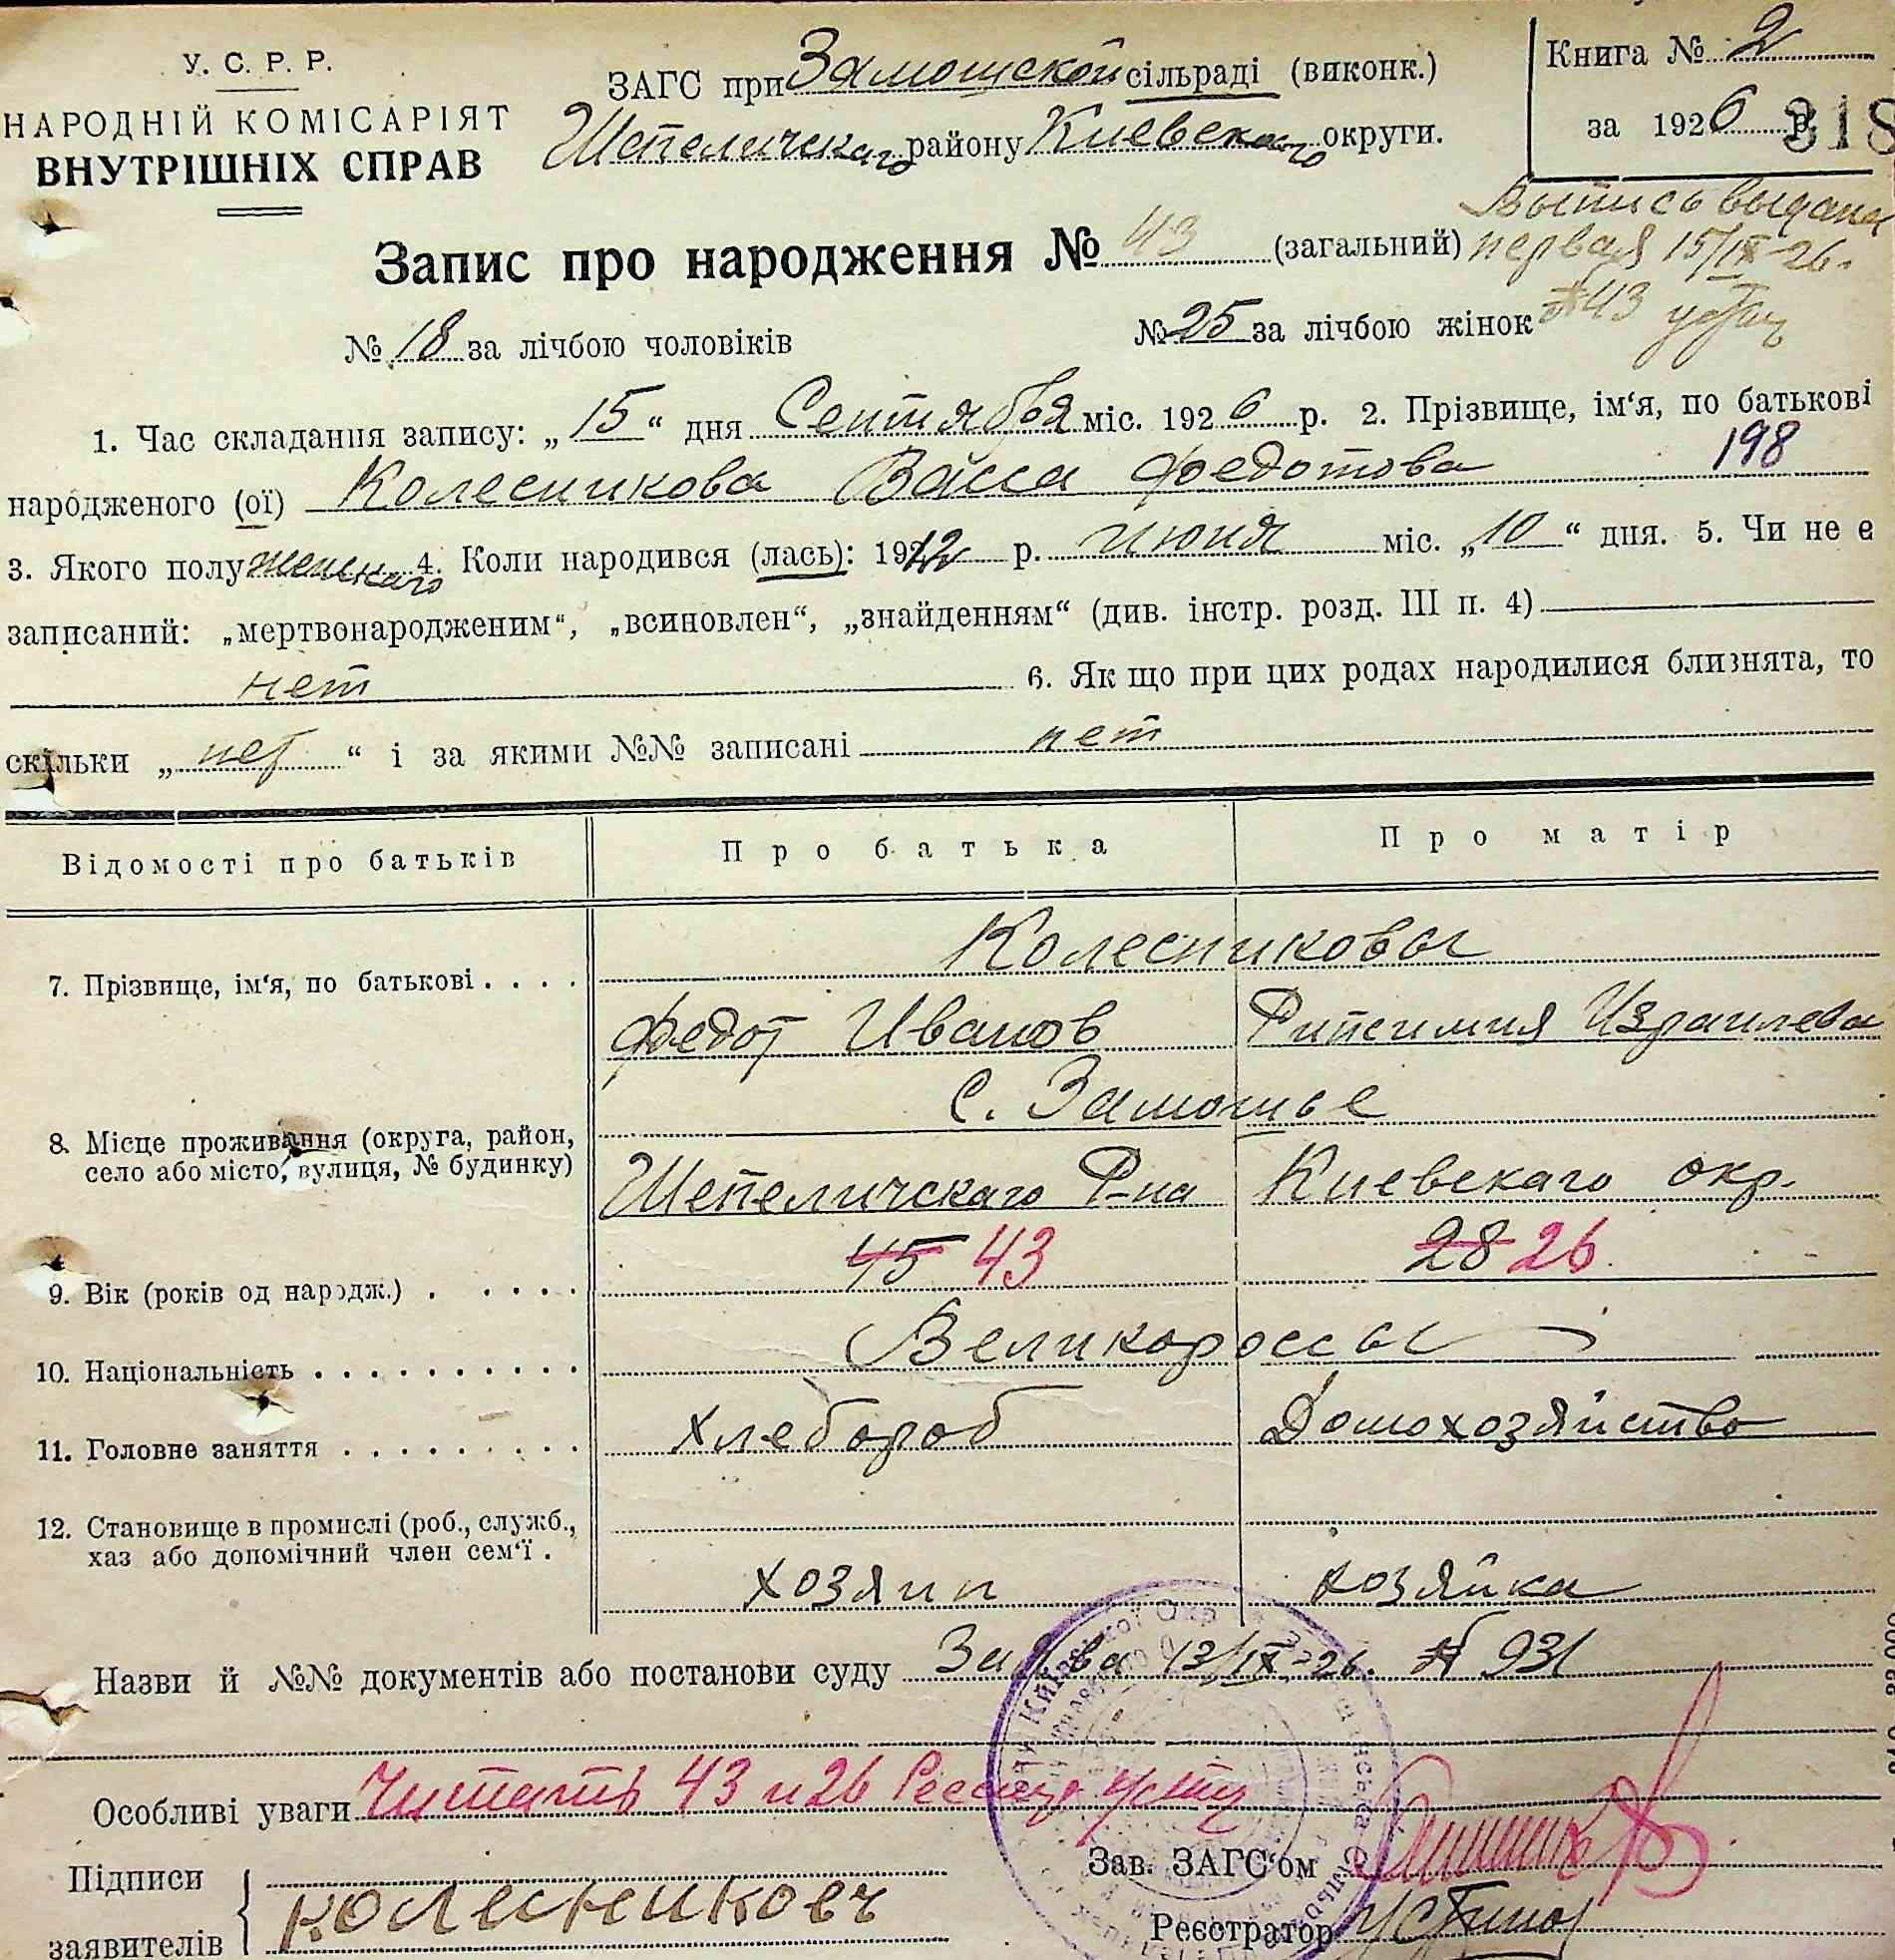 У. С. Р. Р.
НАРОДНІЙ КОМІСАРІЯТ
ВНУТРІШНІХ СПРАВ
ЗАГС при Замошской сільраді (виконк.)
Шепеличскаго району Киевскаго округи.
Книга № 2
за 1926 р.
318
Запис про народження № 43 (загальний)
Выпись выдана
первая 15/IX-26.
№ 43
№ 18 за лічбою чоловіків
№ 25 за лічбою жінок
1. Час складання запису: „15“ дня Сентября міс. 1926 р. 2. Прізвище, ім‘я, по батькові
народженого (ої) Колесникова Васса Федотова 198
3. Якого полу женскаго 4. Коли народився (лась): 1912 р. июня міс. „10“ дня. 5. Чи не є
записаний: „мертвонародженим“, „всиновлен“, „знайденням“ (див. інстр. розд. III п. 4)
нет 6. Як що при цих родах народилися близнята, то
скільки „нет“ і за якими №№ записані нет
Відомості про батьків Про батька Про матір
Колесниковы
7. Прізвище, ім‘я, по батькові . . . .
Федот Иванов Рипсимия Израилева
с. Замошье
8. Місце проживання (округа, район,
село або місто, вулиця, № будинку)
Шепеличскаго Р-на Киевскаго окр.
45 43 28 26
9. Вік (років од народж.) . . . . .
Великороссы
10. Національність . . . . . . . . . .
хлебороб Домохозяйство
11. Головне заняття . . . . . . . . .
12. Становище в промислі (роб., служб.,
хаз або допомічний член сем‘ї .
хозяин хозяйка
Назви й №№ документів або постанови суду Заява 13/IX-26. № 931
Особливі уваги Читать 43 и 26
Підписи
заявителів
Колесниковъ
Зав. ЗАГС‘ом
Реєстратор Устинов